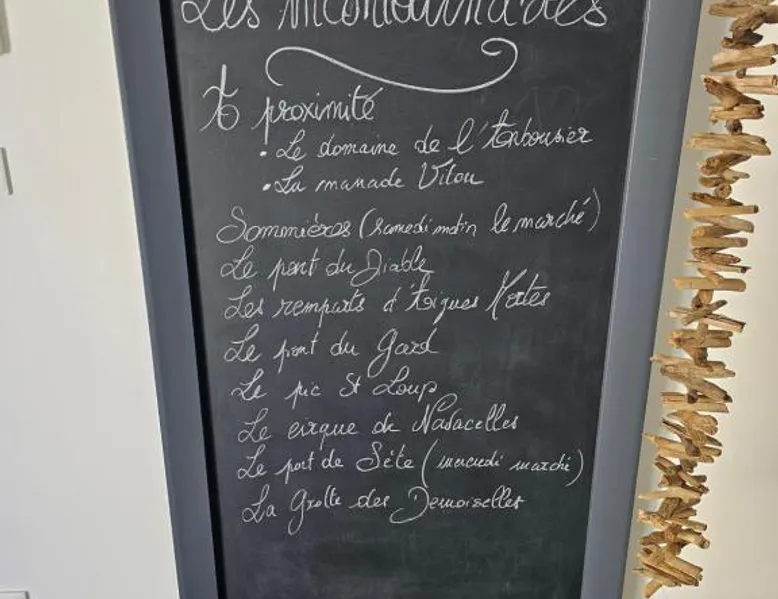 Les incontournables
A proximité
• Le domaine de l'Arbousier
• La manade Vitou
Sommières (samedi matin le marché)
Le pont du Diable
Les remparts d'Aigues Mortes
Le pont du Gard
Le pic St Loup
Le cirque de Navacelles
Le port de Sète (mercredi marché)
La Grotte des Demoiselles